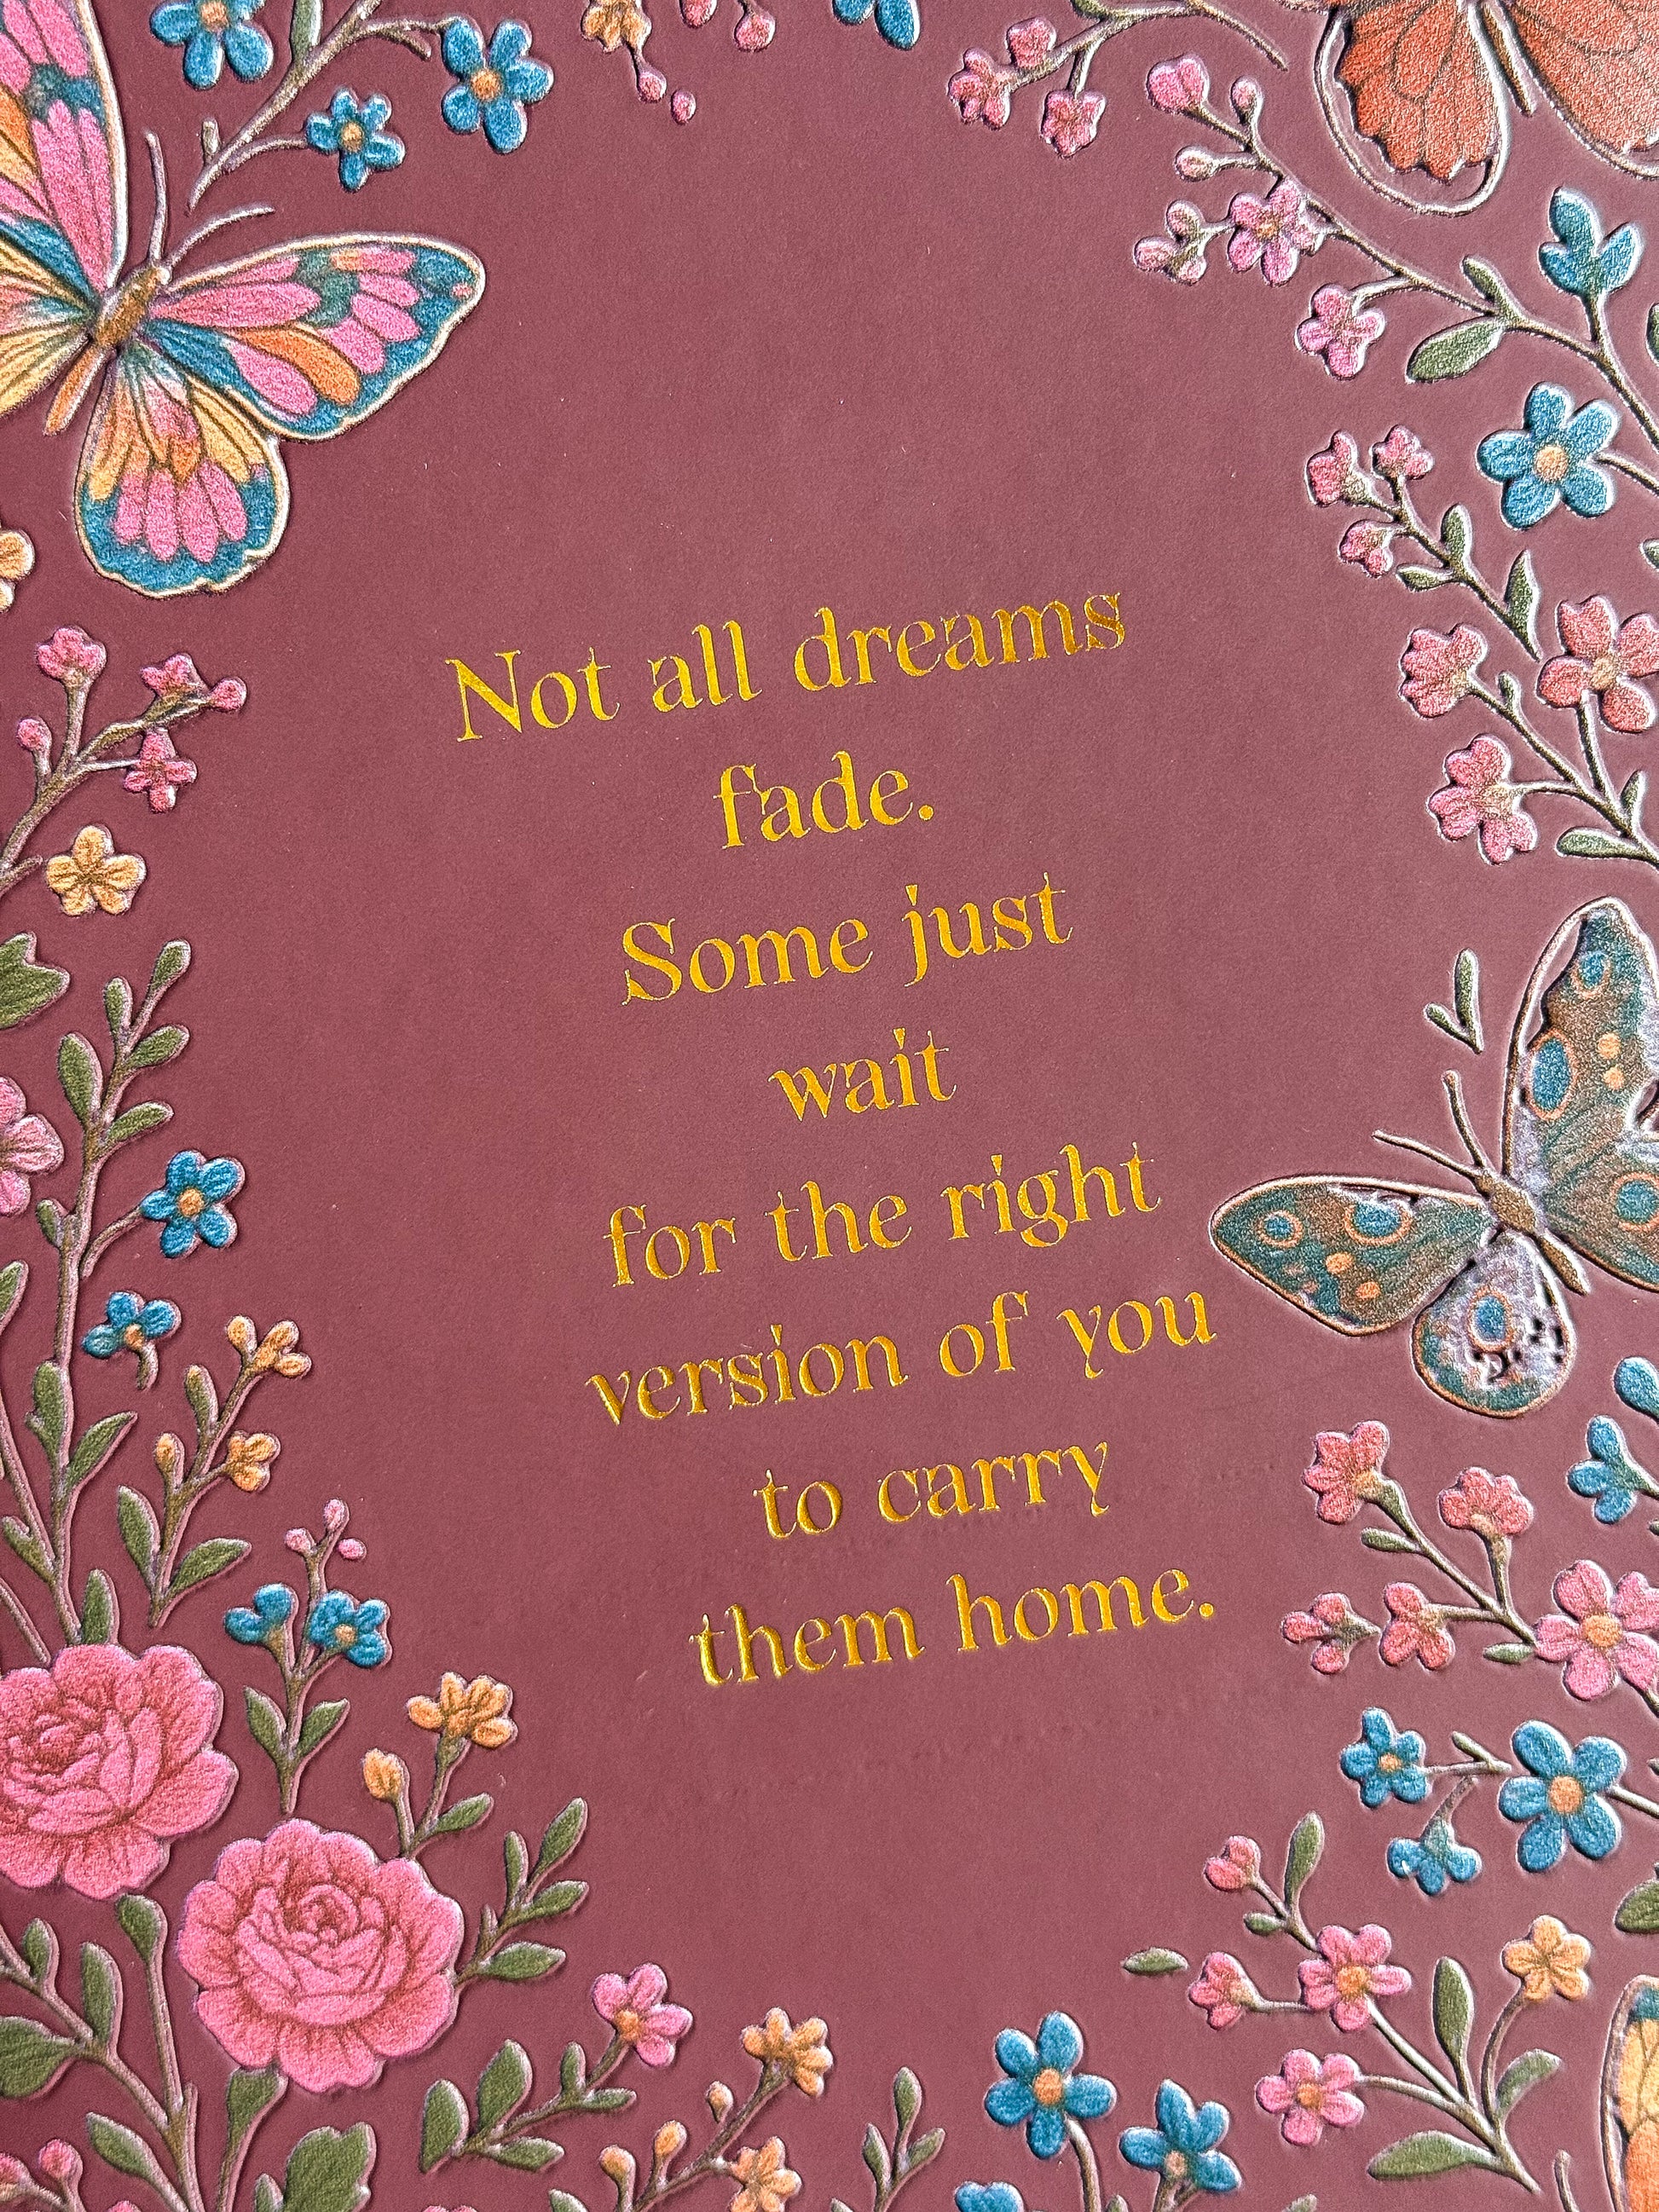 Not all dreams
fade.
Some just
wait
for the right
version of you
to carry
them home.